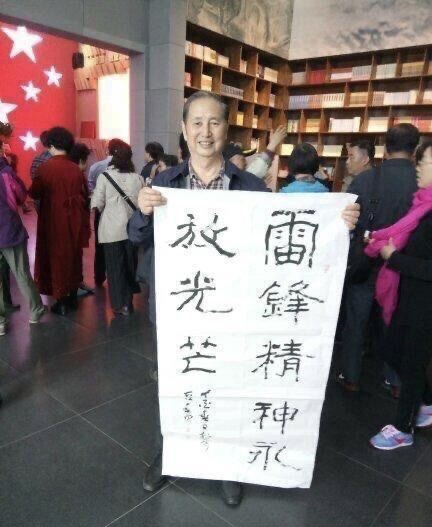 雷鋒精神永
放光芒